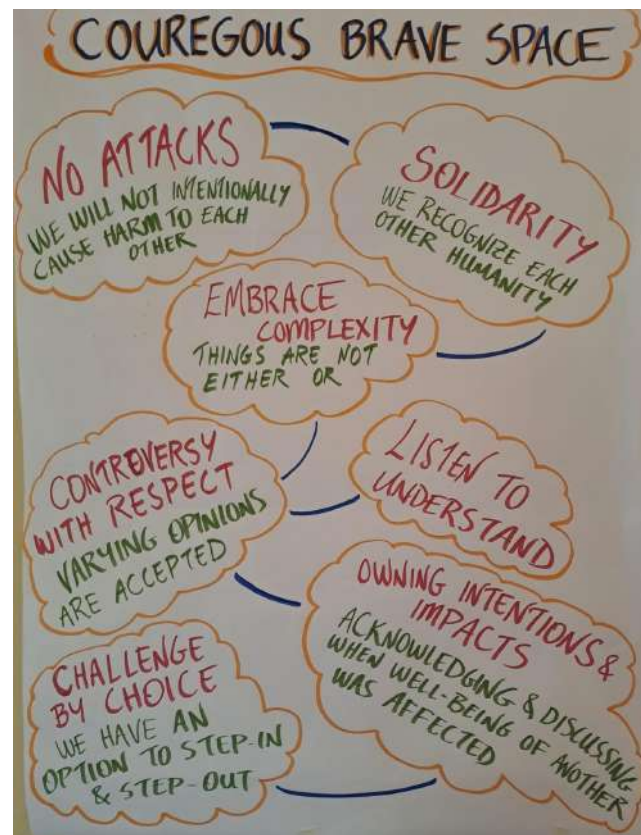 COUREGOUS BRAVE SPACE
NO ATTACKS
WE WILL NOT INTENTIONALLY
CAUSE HARM TO EACH
OTHER
SOLIDARITY
WE RECOGNIZE EACH
OTHER HUMANITY
EMBRACE
COMPLEXITY
THINGS ARE NOT
EITHER OR
CONTROVERSY
WITH RESPECT
VARYING OPINIONS
ARE ACCEPTED
LISTEN TO
UNDERSTAND
OWNING INTENTIONS &
IMPACTS
ACKNOWLEDGING & DISCUSSING
WHEN WELL-BEING OF ANOTHER
WAS AFFECTED
CHALLENGE
BY CHOICE
WE HAVE AN
OPTION TO STEP-IN
& STEP-OUT